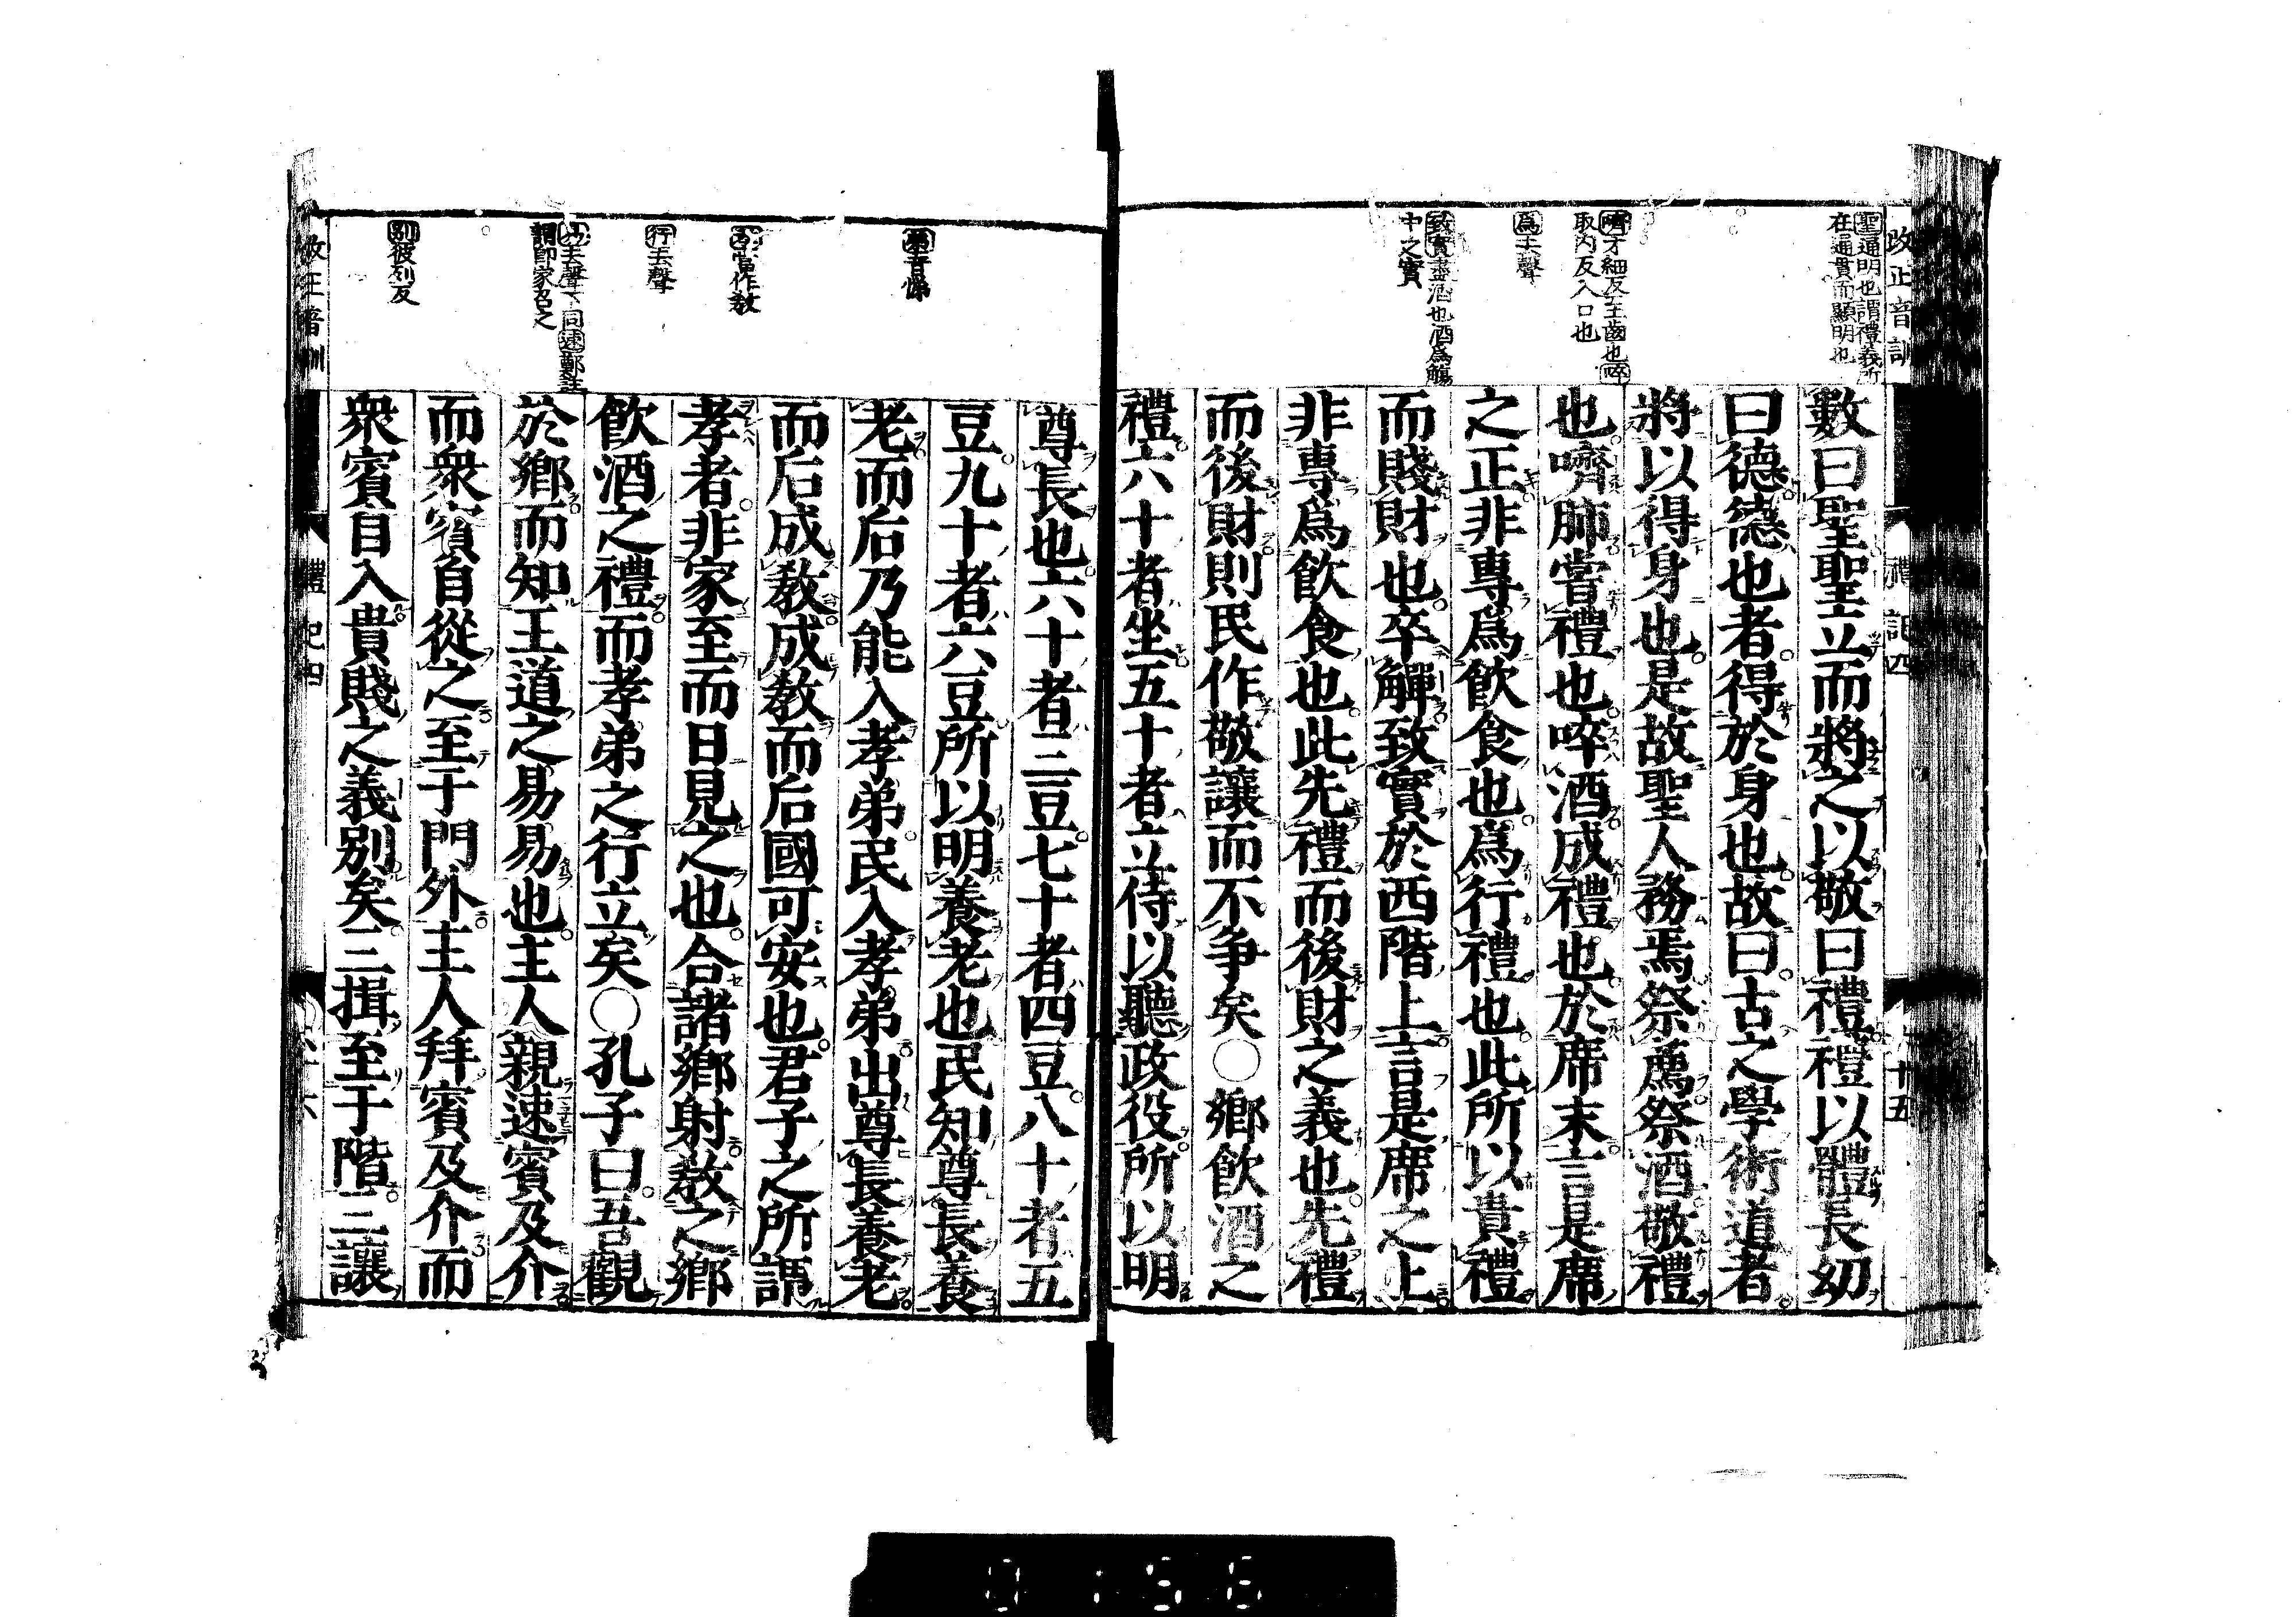 改正音訓
禮記四
十五
聖通明也謂禮義所
在通貫而顯明也
嚌才細反至齒也啐
取内反入口也
爲去聲
致實盡酒也酒爲觴
中之實
數曰聖聖立而將之以敬曰禮禮以體長幼
曰德德也者得於身也故曰古之學術道者
將以得身也是故聖人務焉祭薦祭酒敬禮
也嚌肺嘗禮也啐酒成禮也於席末言是席
之正非專爲飲食也爲行禮也此所以貴禮
而賤財也卒觶致實於西階上言是席之上
非專爲飲食也此先禮而後財之義也先禮
而後財則民作敬讓而不争矣○鄉飲酒之
禮六十者坐五十者立侍以聽政役所以明
弟音悌
當作教
行去聲
去聲下同速鄭註
謂即家召之
別彼列反
尊長也六十者三豆七十者四豆八十者五
豆九十者六豆所以明養老也民知尊長養
老而后乃能入孝弟民入孝弟出尊長養老
而后成教成教而后國可安也君子之所謂
孝者非家至而日見之也合諸鄉射教之鄉
飲酒之禮而孝弟之行立矣○孔子曰吾觀
於鄉而知王道之易易也主人親速賓及介
而衆賓自從之至于門外主人拜賓及介而
衆賓自入貴賤之義別矣三揖至于階三讓
改正音訓
禮記四
0156